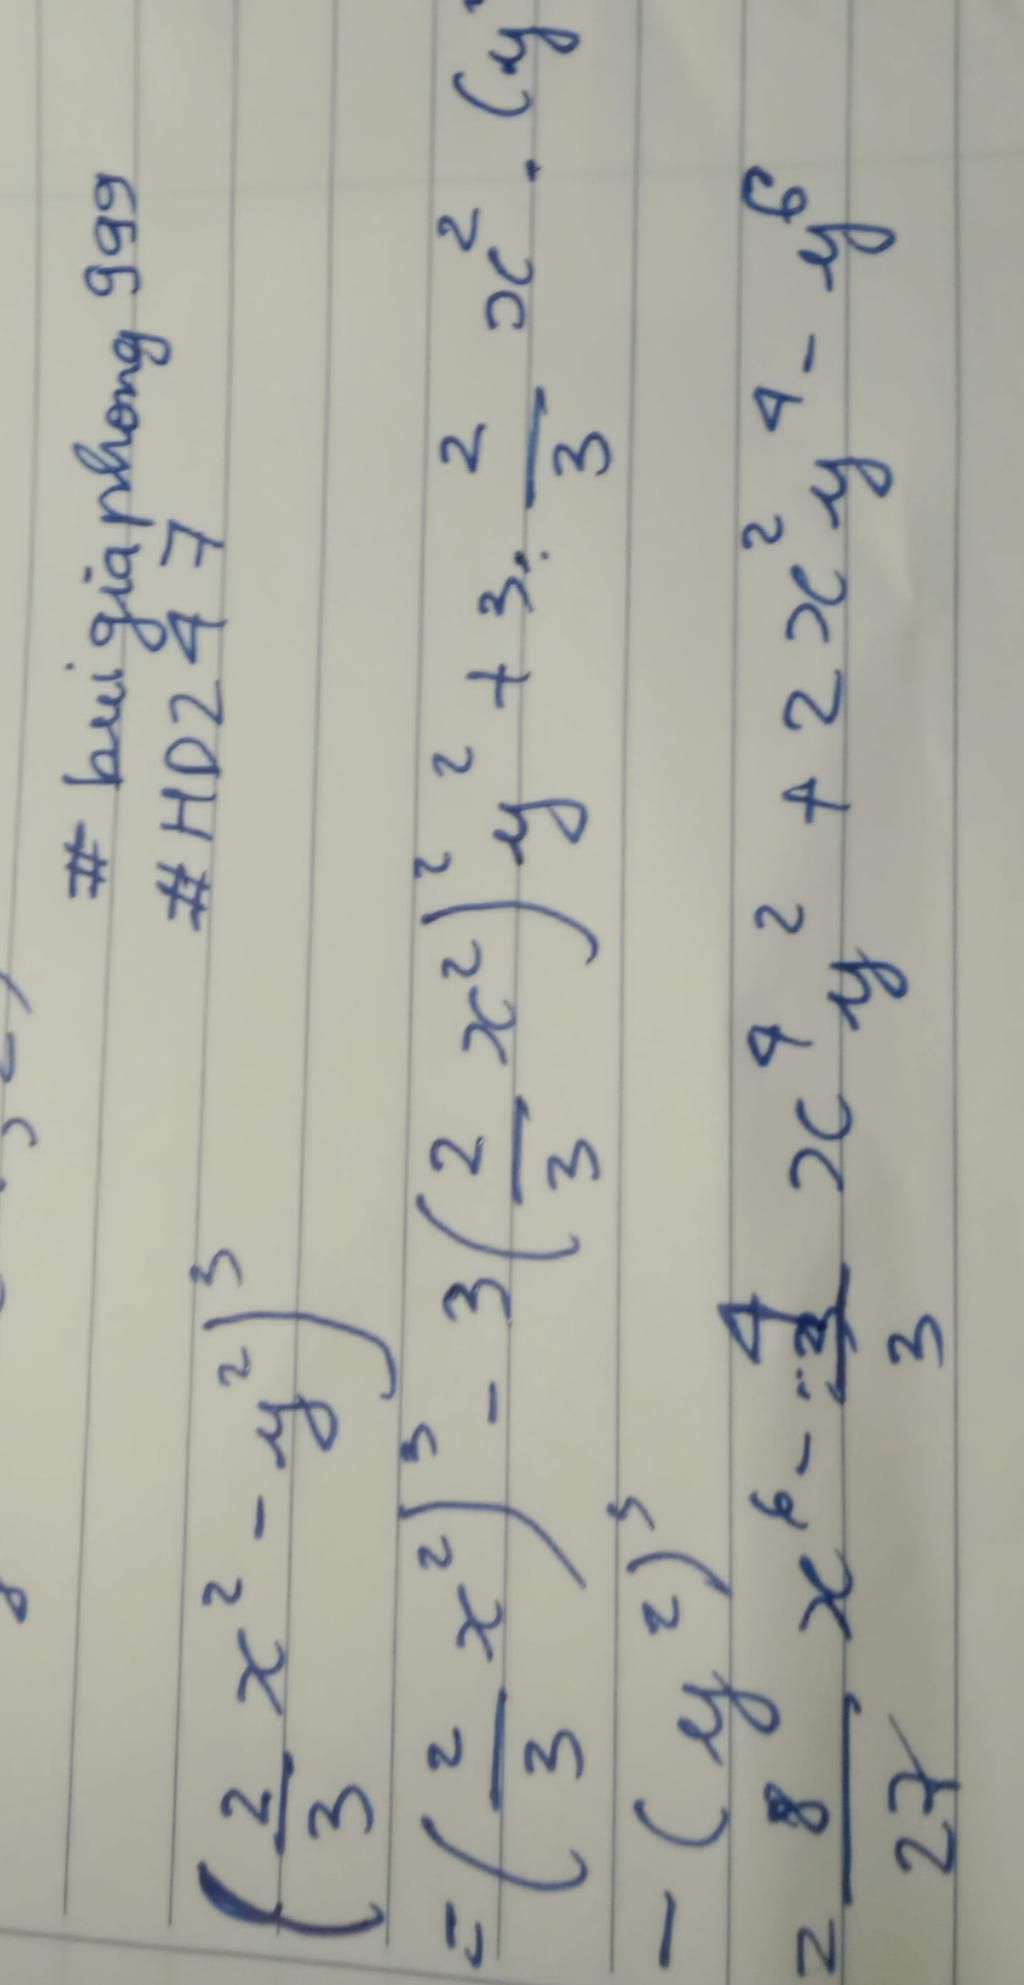 # buigiaphong 999
# HD247
(2/3 x² - y²)³
= (2/3 x²)³ - 3(2/3 x²)² y² + 3. 2/3 x² . (y
- (y²)³
= 8/27 x⁶ - 4/3 x⁴y² + 2x²y⁴ - y⁶